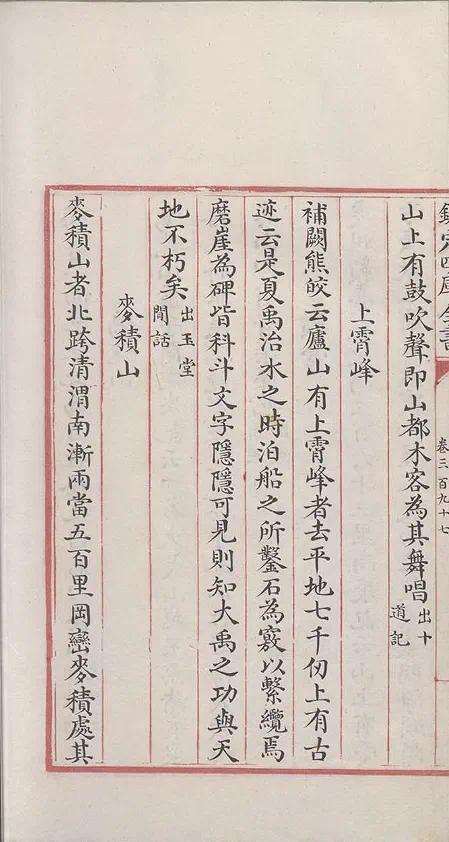 欽定四庫全書
卷三百九十七
山上有鼓吹聲即山都木客為其舞唱出十道記
上霄峰
補闕熊皎云廬山有上霄峰者去平地七千仞上有古
迹云是夏禹治水之時泊船之所鑿石為竅以繫纜焉
磨崖為碑皆科斗文字隱隱可見則知大禹之功與天
地不朽矣出玉堂閒話
麥積山
麥積山者北跨清渭南漸兩當五百里岡巒麥積處其